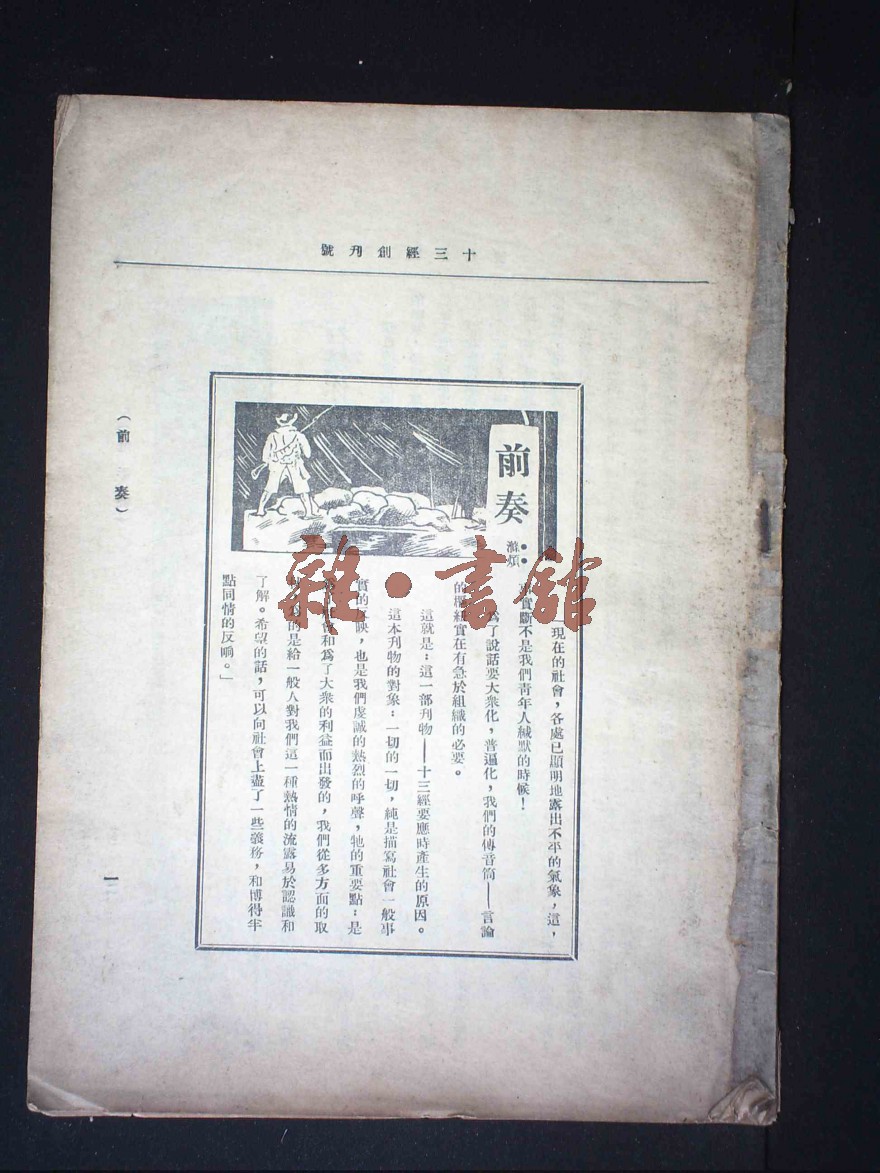 十三經創刊號
前奏
「現在的社會，各處已顯明地露出不平的氣象，這，
實斷不是我們靑年人緘默的時候！
爲了說話要大衆化，普遍化，我們的傳音筒——言論
的樞紐實在有急於組織的必要。
這就是：這一部刊物——十三經要應時產生的原因。
這本刊物的對象：一切的一切，純是描寫社會一般事
實的反映，也是我們虔誠的熱烈的呼聲，牠的重要點：是
和爲了大衆的利益而出發的，我們從多方面的取
的是給一般人對我們這一種熱情的流露易於認識和
了解。希望的話，可以向社會上盡了一些義務，和博得半
點同情的反响。」
（前奏）
雜·書館